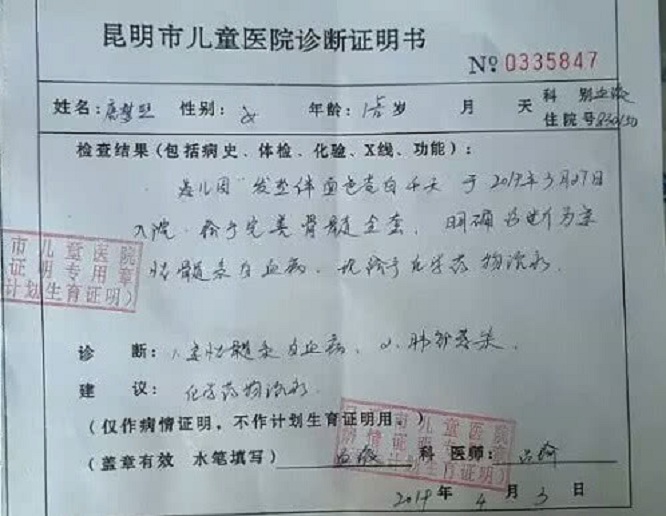 昆明市儿童医院诊断证明书
№ 0335847
姓名: 性别: 女 年龄: 岁 月 天 科别 血液
住院号
检查结果(包括病史、体检、化验、X线、功能):
患儿因"发热伴面色苍白 天 于2019年3月27日
入院. 给予完善骨髓全套, 明确诊断为急
性髓系白血病, 现给予化学药物治疗.
市儿童医院
证明专用章
计划生育证明)
诊 断: 1.急性髓系白血病, 2.肺部感染.
建 议: 化学药物治疗.
(仅作病情证明,不作计划生育证明用。)
市儿童医院
病情证明专用章
计划生育证明)
(盖章有效 水笔填写) 血液 科 医师:
2019年4月3日